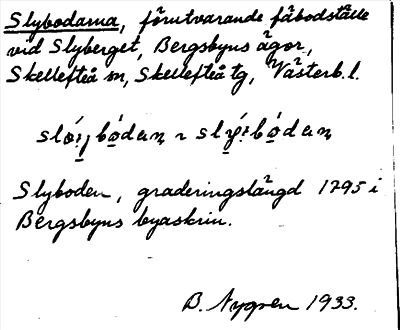 Slybodarna, förutvarande fäbodställe
vid Slyberget, Bergsbyns ägor,
Skellefteå sn, Skellefteå tg, Västerb. l.
Slyboden, graderingslängd 1795 i
Bergsbyns byaskrin.
B. Nygren 1933.